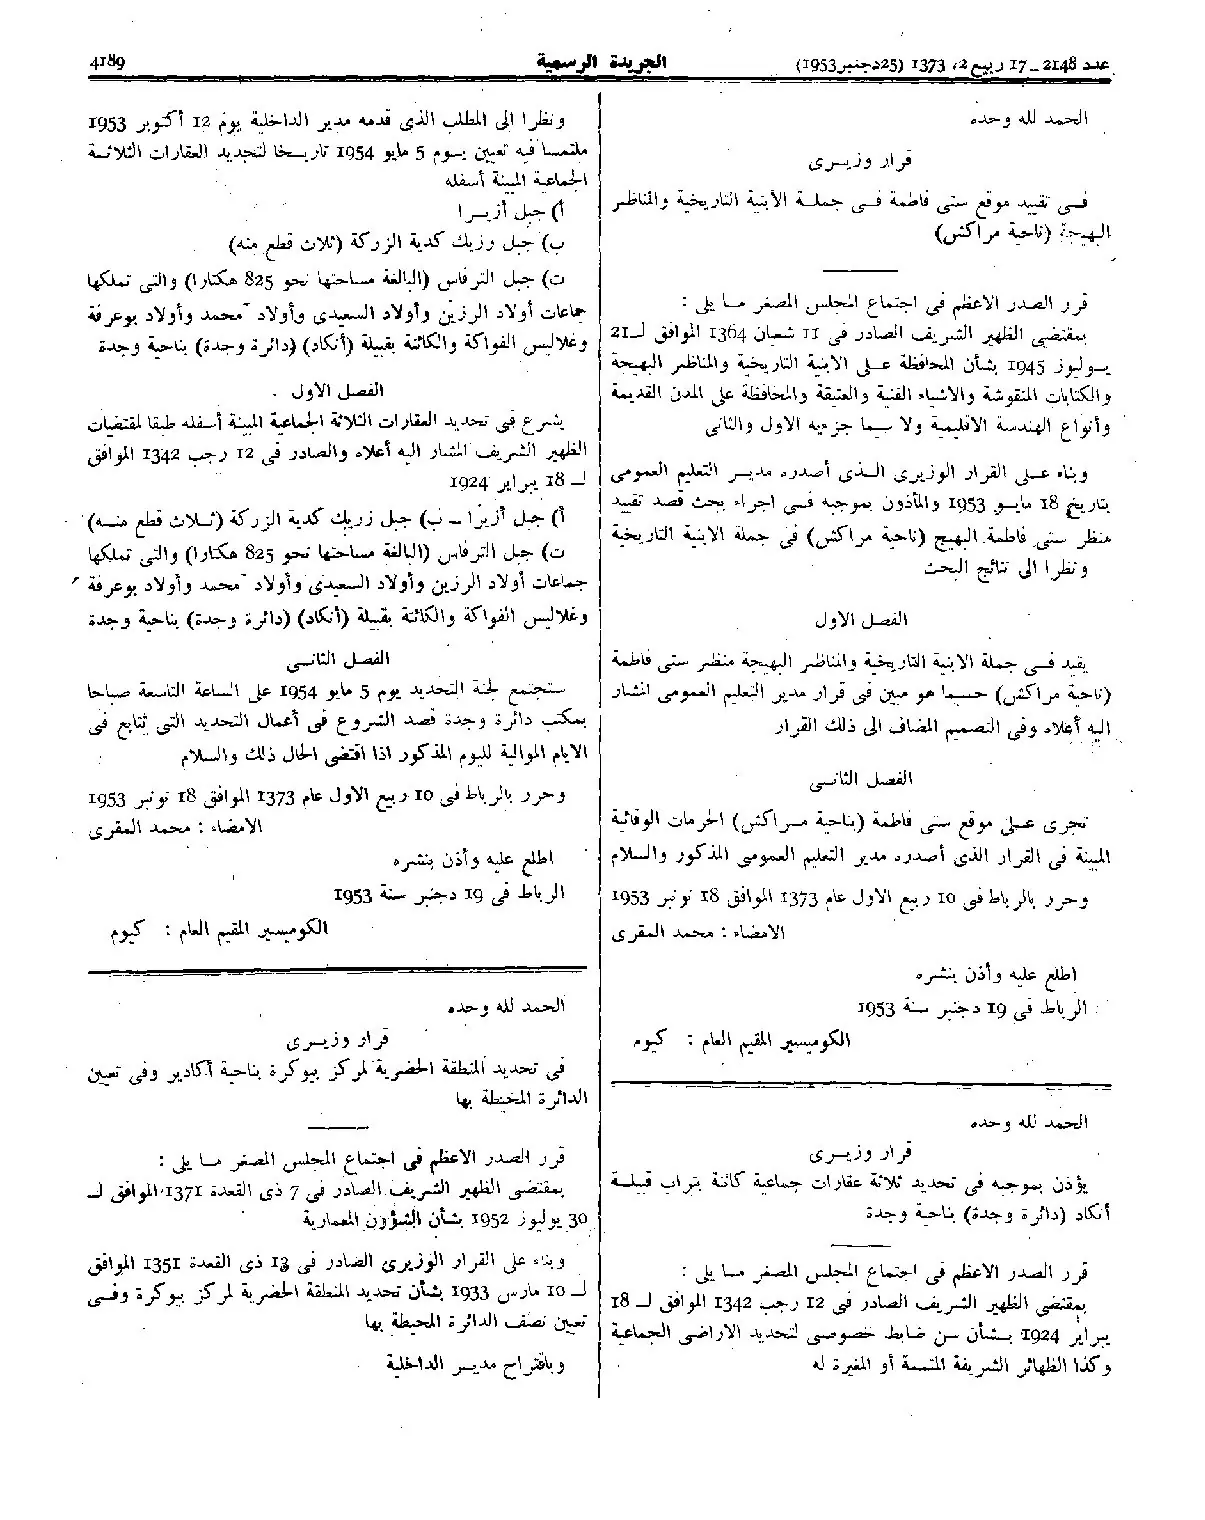 عدد 2148 ـ 17 ربيع 2، 1373 (25 دجنبر 1953)
الجريدة الرسمية
4189
الحمد لله وحده
قرار وزيـرى
فـى تقييد موقع ستى فاطمة فـى جملـة الأبنية التاريخية والمناظر
البهيجة (ناحية مراكش)
قرر الصدر الاعظم فى اجتماع المجلس المصغر مـا يلى :
بمقتضى الظهير الشريف الصادر فى 11 شعبان 1364 الموافق لـ 21
يـوليوز 1945 بشأن المحافظة عـلى الابنية التاريخية والمناظر البهيجة
والكتابات المنقوشة والاشياء الفنية والعتيقة والمحافظة على المدن القديمة
وأنواع الهندسة الاقليمية ولا سيما جزءيه الاول والثانى
وبناء عـلى القرار الوزيرى الـذى أصدره مديـر التعليم العمومى
بتاريخ 18 مايـو 1953 والمأذون بموجبه فـى اجراء بحث قصد تقييد
منظر ستى فاطمة البهيج (ناحية مراكش) فى جملة الابنية التاريخية
ونظرا الى نتائج البحث
الفصل الاول
يقيد فـى جملة الابنية التاريخية والمناظر البهيجة منظر ستى فاطمة
(ناحية مراكش) حسبما هو مبين فى قرار مدير التعليم العمومى المشار
اليه أعلاه وفى التصميم المضاف الى ذلك القرار
الفصل الثانـى
تجرى عـلى موقع ستى فاطمة (بناحية مـراكش) الحرمات الوقائية
المبينة فى القرار الذى أصدره مدير التعليم العمومى المذكور والسلام
وحرر بالرباط فى 10 ربيع الاول عام 1373 الموافق 18 نونبر 1953
الامضاء : محمد المقرى
اطلع عليه وأذن بنشره
الرباط فى 19 دجنبر سنة 1953
الكوميسير المقيم العام : كيوم
الحمد لله وحده
قرار وزيـرى
يؤذن بموجبه فى تحديد ثلاثة عقارات جماعية كائنة بتراب قبيلـة
أنكاد (دائرة وجدة) بناحية وجدة
قرر الصدر الاعظم فى اجتماع المجلس المصغر مـا يلى :
بمقتضى الظهير الشريف الصادر فى 12 رجب 1342 الموافق لـ 18
يبراير 1924 بـشأن سـن ضابط خصوصى لتحديد الاراضى الجماعية
وكذا الظهائر الشريفة المتممة أو المغيرة له
ونظرا الى المطلب الذى قدمه مدير الداخلية يوم 12 أكتوبر 1953
ملتمسا فيه تعيين يـوم 5 مايو 1954 تاريـخا لتحديد العقارات الثلاثـة
الجماعية المبينة أسفله
أ) جبل أزيـرا
ب) جبل وزيك كدية الزركة (ثلاث قطع منه)
ت) جبل الترفاس (البالغة مساحتها نحو 825 هكتارا) والتى تملكها
جماعات أولاد الرزين وأولاد السعيدى وأولاد محمد وأولاد بوعرفة
وغلاليس الفواكة والكائنة بقبيلة (أنكاد) (دائرة وجدة) بناحية وجدة
الفصل الاول
يشرع فى تحديد العقارات الثلاثة الجماعية المبينة أسفله طبقا لمقتضيات
الظهير الشريف المشار اليه أعلاه والصادر فى 12 رجب 1342 الموافق
لـ 18 يبراير 1924
أ) جبل أزيرا ـ ب) جبل زريك كدية الزركة (ثـلاث قطع منـه)
ت) جبل الترفاس (البالغة مساحتها نحو 825 هكتارا) والتى تملكها
جماعات أولاد الرزين وأولاد السعيدى وأولاد محمد وأولاد بوعرفة
وغلاليس الفواكة والكائنة بقبيلة (أنكاد) (دائرة وجدة) بناحية وجدة
الفصل الثانـى
ستجتمع لجنة التحديد يوم 5 مايو 1954 على الساعة التاسعة صباحا
بمكتب دائرة وجدة قصد الشروع فى أعمال التحديد التى تتابع فى
الايام الموالية لليوم المذكور اذا اقتضى الحال ذلك والسلام
وحرر بالرباط فى 10 ربيع الاول عام 1373 الموافق 18 نونبر 1953
الامضاء : محمد المقرى
اطلع عليه وأذن بنشره
الرباط فى 19 دجنبر سنة 1953
الكوميسير المقيم العام : كيوم
الحمد لله وحده
قرار وزيـرى
فى تحديد المنطقة الحضرية لمركز بيوكرة بناحية أكادير وفى تعيين
الدائرة المحيطة بها
قرر الصدر الاعظم فى اجتماع المجلس المصغر مـا يلى :
بمقتضى الظهير الشريف الصادر فى 7 ذى القعدة 1371 الموافق لـ
30 يوليوز 1952 بشأن الشؤون المعمارية
وبناء على القرار الوزيرى الصادر فى 13 ذى القعدة 1351 الموافق
لـ 10 مارس 1933 بشأن تحديد المنطقة الحضرية لمركز بيوكرة وفـى
تعيين نصف الدائرة المحيطة بها
وباقتراح مديـر الداخلية